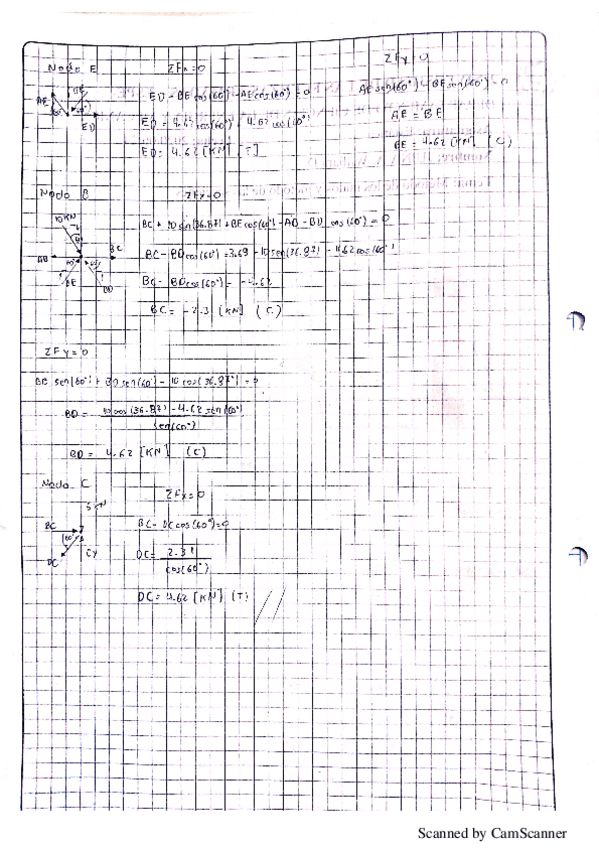 Nodo E
ΣFx=0
ΣFy=0
ED - BE cos(60°) - AE cos(60°) = 0
AE sen(60°) - BE sen(60°) = 0
AE
BE
60°
ED
ED = 4.62 cos(60°) + 4.62 cos(60°)
AE = BE
ED = 4.62 [KN] [T]
BE = 4.62 [KN] (C)
Nodo B
ΣFx=0
10 KN
BC + 10 sen(36.87) + BE cos(60°) - AB - BD cos(60°) = 0
AB
BC
BE
BD
BC - BD cos(60°) = 3.69 - 10 sen(36.87) - 4.62 cos(60°)
BC - BD cos(60°) = -4.62
BC = -2.3 [KN] (C)
ΣFy=0
BE sen(60°) + BD sen(60°) - 10 cos(36.87°) = 0
BD = 10 cos(36.87) - 4.62 sen(60°)
sen(60°)
BD = 4.62 [KN] (C)
Nodo C
ΣFx=0
5 KN
BC
60°
CY
DC
BC - DC cos(60°) = 0
DC = 2.31
cos(60°)
DC = 4.62 [KN] (T)
Scanned by CamScanner